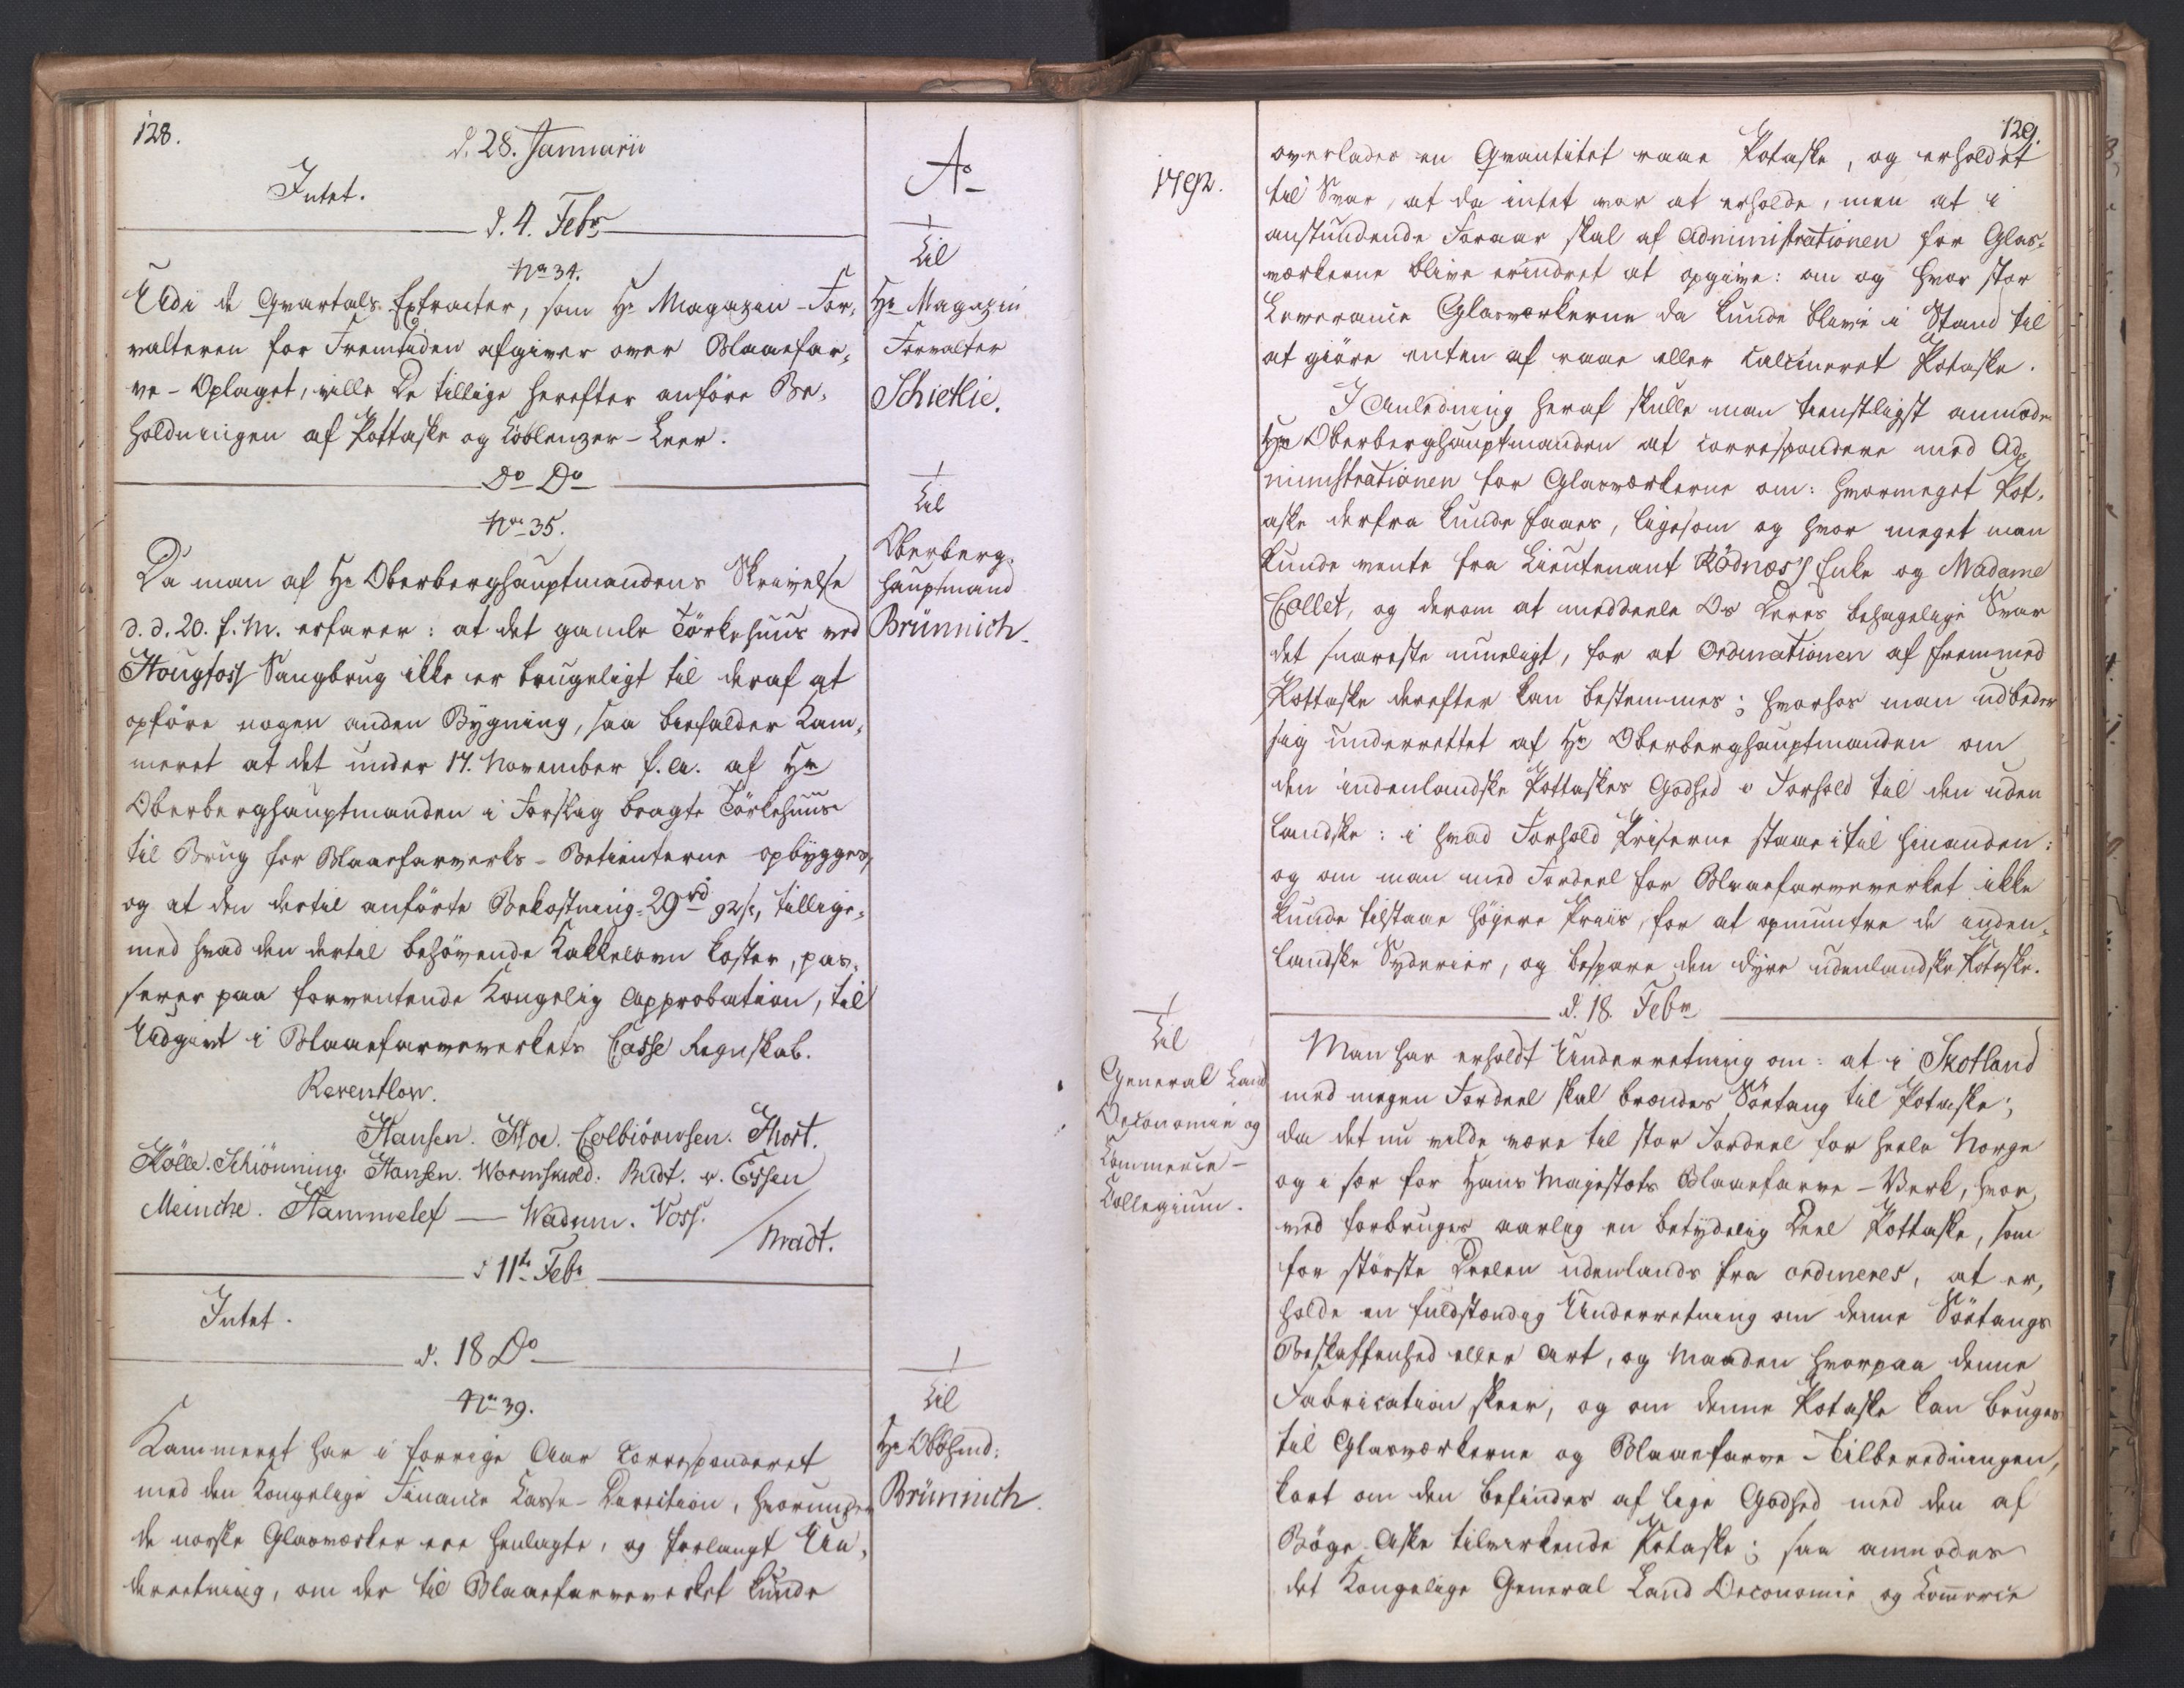 128.
d. 28. Januarii
Intet.
d. 4. Febr
No 34.
Udi de Qvartals-Extracter, som Hr Magazin-For-
valteren for Fremtiden afgiver over Blaaefar-
ve-Oplaget, ville De tillige herefter anføre Be-
holdningen af Pottaske og Coblenzer-Leer.
Do Do
No 35.
Da man af Hr Oberberghauptmandens Skrivelse
d. d. 20. f. M. erfarer: at det gamle Törkehuus ved
Hougfoss Saugbrug ikke er brugeligt til deraf at
opföre nogen anden Bygning, saa biefalder Kam-
meret at det under 17. November f. a. af Hr
Oberberghauptmanden i Forslag bragte Törkehuus
til Brug for Blaaefarverks-Betienterne opbygges,
og at den dertil anförte Bekostning 29 rd 92 s, tillige-
med hvad den dertil behövende Kakkelovn koster, pas-
serer paa forventende Kongelig Approbation, til
Udgivt i Blaaefarveverkets Casse Regnskab.
Reventlow.
Hansen. Hoe. Colbiörnsen. Thort.
Kölle. Schiönning. Hansen. Wormskiold. Bradt. v. Essen
Meinche. Hammelef — Wadum. Voss.
/ Bradt.
d 11te Febr
Intet.
d. 18 Do
No 39.
Kammeret har i forrige Aar corresponderet
med den Kongelige Finance Casse-Direction, hvorunder
de norske Glasværker ere henlagte, og forlangt Un-
derretning, om der til Blaaefarveverket kunde
Ao
Til
Hr Magazin
Forvalter
Schietlie.
Til
Oberberg-
hauptmand
Brünnich
Til
Hr Obbhmd:
Brünnich.
1792.
Til
General Land
Oeconomie og
Commerce-
Collegium.
129.
overlades en Qvantitet raae Potaske, og erholdet
til Svar, at da intet var at erholde, men at i
anstundende Foraar skal af Administrationen for Glas-
værkerne blive erindret at opgive: om og hvor stor
Leverance Glasværkerne da kunde blive i Stand til
at giöre enten af raae eller calcineret Potaske.
I Anledning heraf skulle man tienstligst anmode
Hr Oberberghauptmanden at correspondere med Ad-
ministrationen for Glasværkerne om: hvormeget Pot-
aske derfra kunde faaes, ligesom og hvor meget man
kunde vente fra Lieutenant Rödnæs's Enke og Madame
Collet, og derom at meddeele Os Deres behagelige Svar
det snareste mueligt, for at Ordinationen af fremmed
Pottaske derefter kan bestemmes; hvorhos man udbeder
sig underrettet af Hr Oberberghauptmanden om
den indenlandske Pottaskes Godhed i Forhold til den uden
landske: i hvad Forhold Priserne staae i til hinanden:
og om man med Fordeel for Blaaefarveverket ikke
kunde tilstaae höyere Priis, for at opmuntre de inden-
landske Syderier, og bespare den dyre udenlandske Potaske.
d. 18. Febr
Man har erholdt Underretning om: at i Skotland
med megen Fordeel skal brændes Söetang til Potaske;
da det nu vilde være til stor Fordeel for heele Norge
og i sær for Hans Majestæts Blaaefarve-Verk, hvor-
ved forbruges aarlig en betydelig Deel Pottaske, som
for störste Deelen udenlands fra ordineres, at er-
holde en fuldstændig Underretning om denne Söetangs
Beskaffenhed eller Art, og Maaden hvorpaa denne
Fabrication skeer, og om denne Potaske kan bruges
til Glasværkerne og Blaaefarve-Tilberedningen,
kort om den befindes af lige Godhed med den af
Böge-Aske tilvirkende Potaske; saa anmodes
det Kongelige General Land Oeconomie og Com̅erce